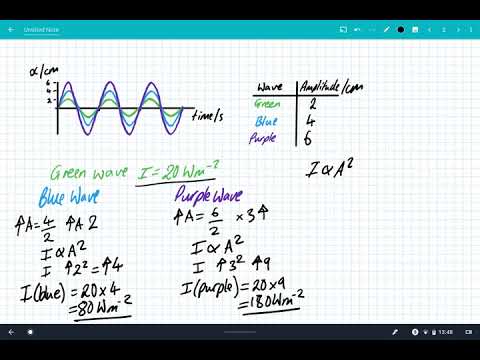 Untitled Note
x/cm
6
4
2
time/s
Wave Amplitude/cm
Green 2
Blue 4
Purple 6
I ∝ A²
Green wave I = 20 Wm⁻²
Blue Wave
↑A = 4/2 ↑A 2
I ∝ A²
I ↑2² = ↑4
I (blue) = 20 x 4
= 80 Wm⁻²
Purple Wave
↑A = 6/2 x3↑
I ∝ A²
I ↑3² ↑9
I (purple) = 20 x 9
= 180 Wm⁻²
13:48